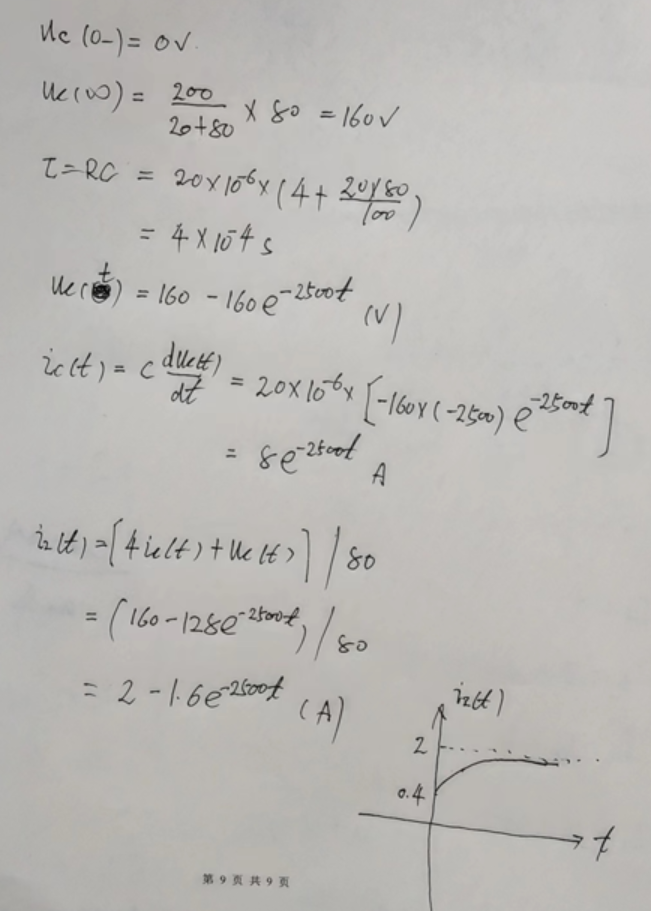 uc(0-) = 0V.
uc(∞) = 200/(20+80) × 80 = 160V
τ=RC = 20×10^-6×(4+ 20×80/100)
= 4×10^-4 s
uc(t) = 160 - 160e^-2500t (V)
ic(t) = C duc(t)/dt = 20×10^-6× [-160×(-2500) e^-2500t]
= 8e^-2500t A
i2(t)=[4ic(t)+uc(t)]/80
= (160-128e^-2500t)/80
= 2-1.6e^-2500t (A)
i2(t)
2
0.4
t
第 9 页 共 9 页